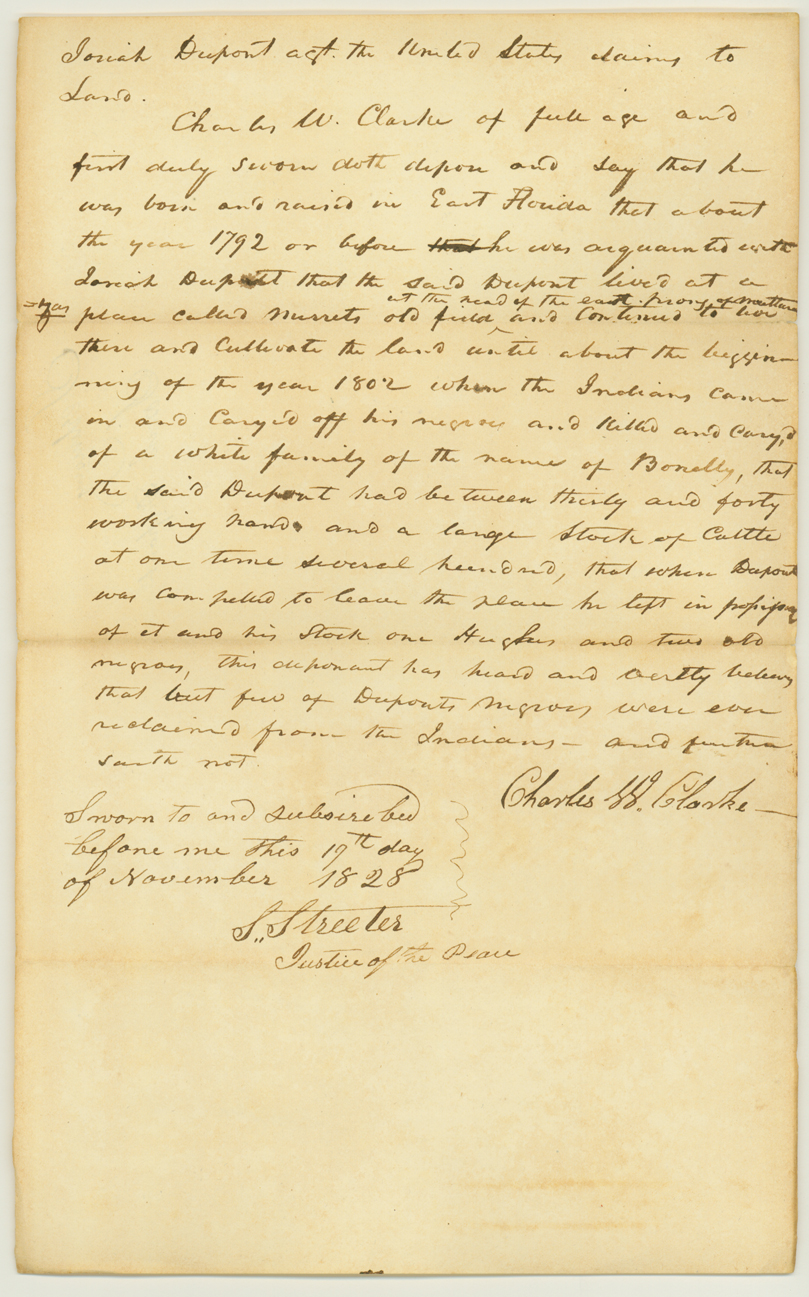 Josiah Dupont agt. the United States claims to
Land.
Charles W. Clarke of full age and
first duly sworn doth depon and say that he
was born and raised in East Florida that about
the year 1792 or before that he was acquainted with
Josiah Dupont that the said Dupont lived at a
at the head of the east prong of Mattan
=zas
place called Nurrets old field and Continued to live
there and Cultivate the land until about the biggin-
ning of the year 1802 when the Indians came
in and Cary'd off his negroes and Killed and Cary,d
of a white family of the name of Bonelly, that
the said Dupont had between thirty and forty
working hands and a large Stock of Cattle
at one time several hundred, that when Dupont
was compelled to leave the place he left in possession
of it and his Stock one Hughes and two old
negroes, this deponant has heard and verely believes
that but few of Duponts Negroes were ever
reclaimed from the Indians – and further
saith not.
Charles W. Clarke
Sworn to and subscribed
before me this 19th day
of November 1828
S. Streeter
Justice of the Peace